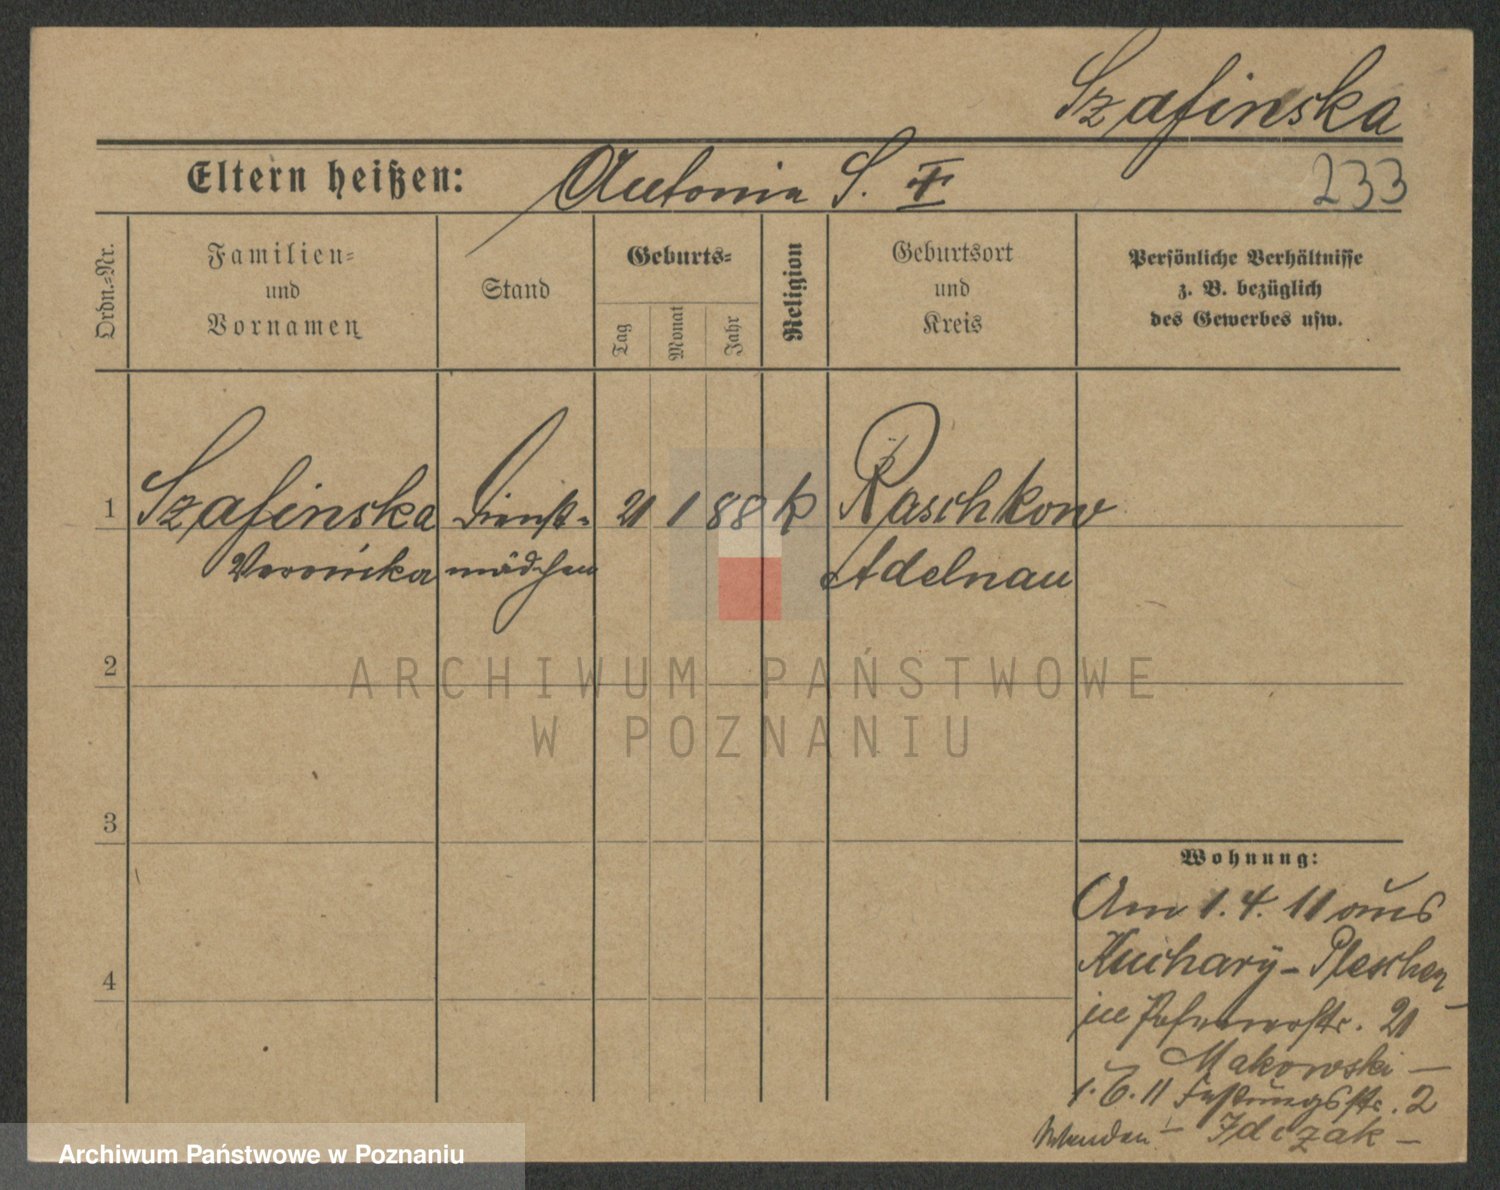 Szafinska
Eltern heißen: Antonia S. †
233
Ordn.-Nr.
Familien-
und
Vornamen
Stand
Geburts-
Tag
Monat
Jahr
Religion
Geburtsort
und
Kreis
Persönliche Verhältnisse
z. B. bezüglich
des Gewerbes usw.
1 Szafinska Dienst- 21 1 88 k Raschkow
Veronika mädchen Adelnau
2
3
4
Wohnung:
Am 1. 4. 11 aus
Kuchary - Pleschen
in Posenerstr. 21
Makowski —
1. 6. 11 Festungsstr. 2
Wenden! - Idczak —
ARCHIWUM PAŃSTWOWE
W POZNANIU
Archiwum Państwowe w Poznaniu